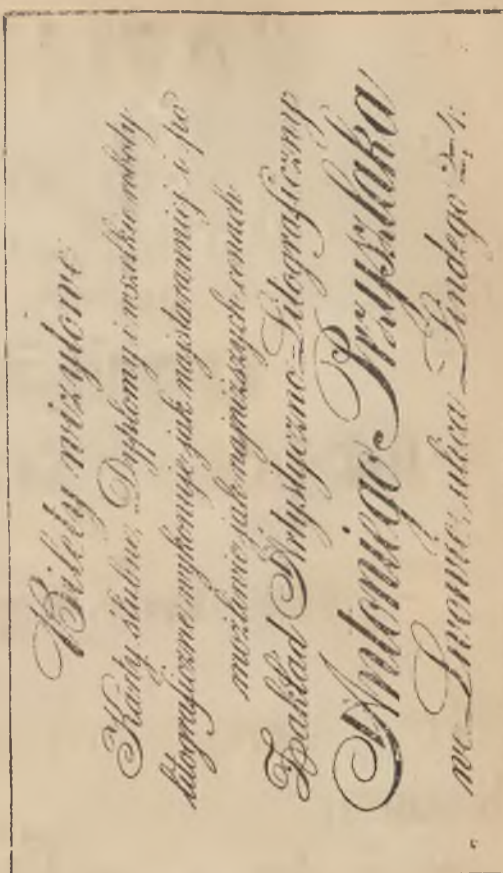 Bilety wizytowe
Karty ślubne, Dyplomy i wszelkie roboty
litograficzne wykonuje jak najstaranniej i po
możliwie jak najniższych cenach
Zakład Artystyczno=Litograficzny
Antoniego Przyszlaka
we Lwowie, ulica Lindego